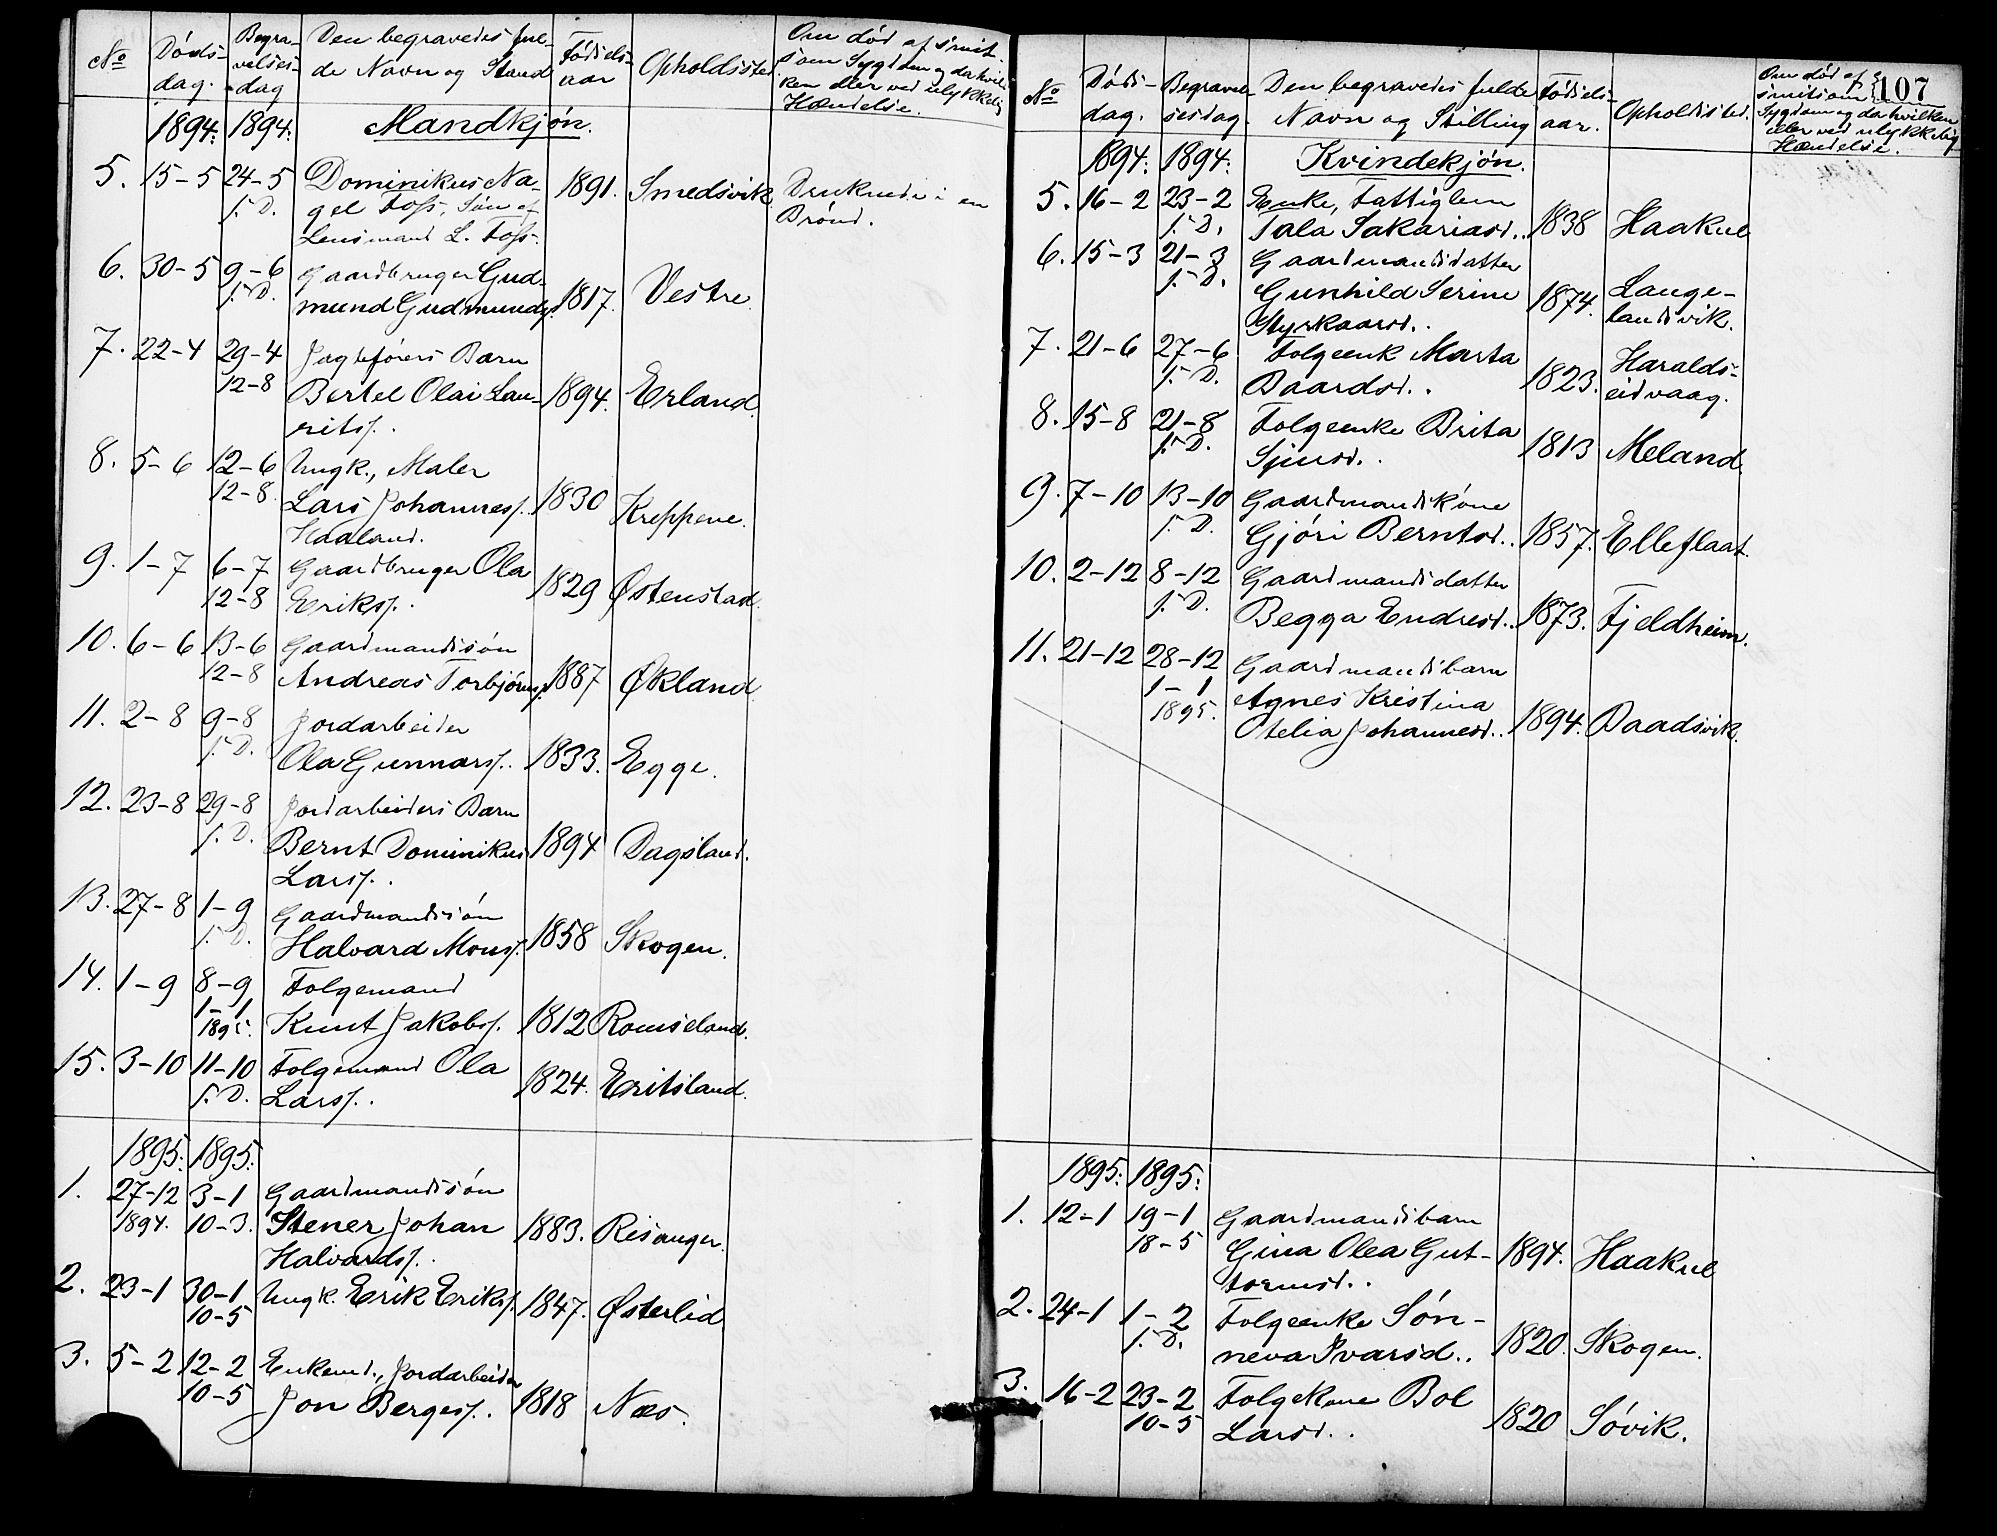 No
Døds-
dag.
Begra-
velses-
dag
Den begravedes ful-
de Navn og Stand
Fødsels-
aar
Opholdssted
Om død af smit-
som Sygdom og da hvil-
ken eller ved ulykkelig
Hændelse.
1894: 1894: Mandkjøn.
5. 15-5 24-5 Dominikus Na-
f. D. gel Foss, Søn af
Lensmand L. Foss.
1891. Smedsvik Druknede i en
Brønd.
6. 30-5 9-6 Gaardbruger Gud-
f. D. mund Gudmunds. 1817. Vestre
7. 22-4 29-4 Jagteførers Barn
12-8 Bertel Olai Lau- 1894. Erland.
ritsf.
8. 5-6 12-6 Ungk., Maler
12-8. Lars Johannesf. 1830 Kreppene.
Haaland.
9. 1-7 6-7 Gaardbruger Ola
12-8 Eriksf. 1829 Østenstad.
10. 6-6 13-6 Gaardmandssøn
12-8 Andreas Torbjørnsf. 1887 Økland
11. 2-8 9-8 Jordarbeider
f. D. Ola Gunnarsf. 1833. Egge.
12. 23-8 29-8 Jordarbeiders Barn
f. D. Bernt Dominikus 1894 Dagsland.
Larsf.
13. 27-8 1-9 Gaardmandssøn
f. D. Halvard Monsf. 1858 Skogen.
14. 1-9 8-9 Folgemand
1-1
1895. Knut Jakobsf. 1812 Romseland.
15. 3-10 11-10 Folgemand Ola
f. D. Larsf. 1824. Eritsland.
1895: 1895:
1. 27-12 3-1 Gaardmandssøn
1894. 10-3. Stener Johan 1883. Risanger.
Halvardsf.
2. 23-1 30-1 Ungk. Erik Eriksf. 1847. Østerlid
10-5
3. 5-2 12-2 Enkemd., Jordarbeider
10-5 Jon Bergesf. 1818 Næs.
107
No
Døds-
dag.
Begravel-
sesdag.
Den begravedes fulde
Navn og Stilling
Fødsels-
aar.
Opholdssted.
Om død af
smitsom
Sygdom og da hvilken
eller ved ulykkelig
Hændelse.
1894: 1894: Kvindekjøn.
5. 16-2 23-2 Enke, Fattiglem
f. D. Tala Sakariasd.. 1838 Haakul
6. 15-3 21-3 Gaardmandsdatter
f. D. Gunhild Serine 1874. Lange-
Styrkaarsd.. landsvik.
7. 21-6 27-6 Folgeenk Marta
f. D. Baardsd.. 1823. Haralds-
eidvaag.
8. 15-8 21-8 Folgeenke Brita
f. D. Sjursd.. 1813 Meland
9. 7-10 13-10 Gaardmandskone
f. D. Gjøri Berntsd.. 1857. Elleflaat.
10. 2-12 8-12 Gaardmandsdatter
f. D. Begga Endresd.. 1873. Fjeldheim.
11. 21-12 28-12 Gaardmandsbarn
1-1 Agnes Kristina
1895. Otelia Johannesd.. 1894. Baadsvik.
1895: 1895:
1. 12-1 19-1 Gaardmandsbarn
18-5 Gina Olea Gut- 1894. Haakul
tormsd..
2. 24-1 1-2 Folgeenke Søn-
f. D. neva Ivarsd.. 1820. Skogen.
3. 16-2 23-2 Folgekone Bol
10-5 Larsd.. 1820 Søvik.